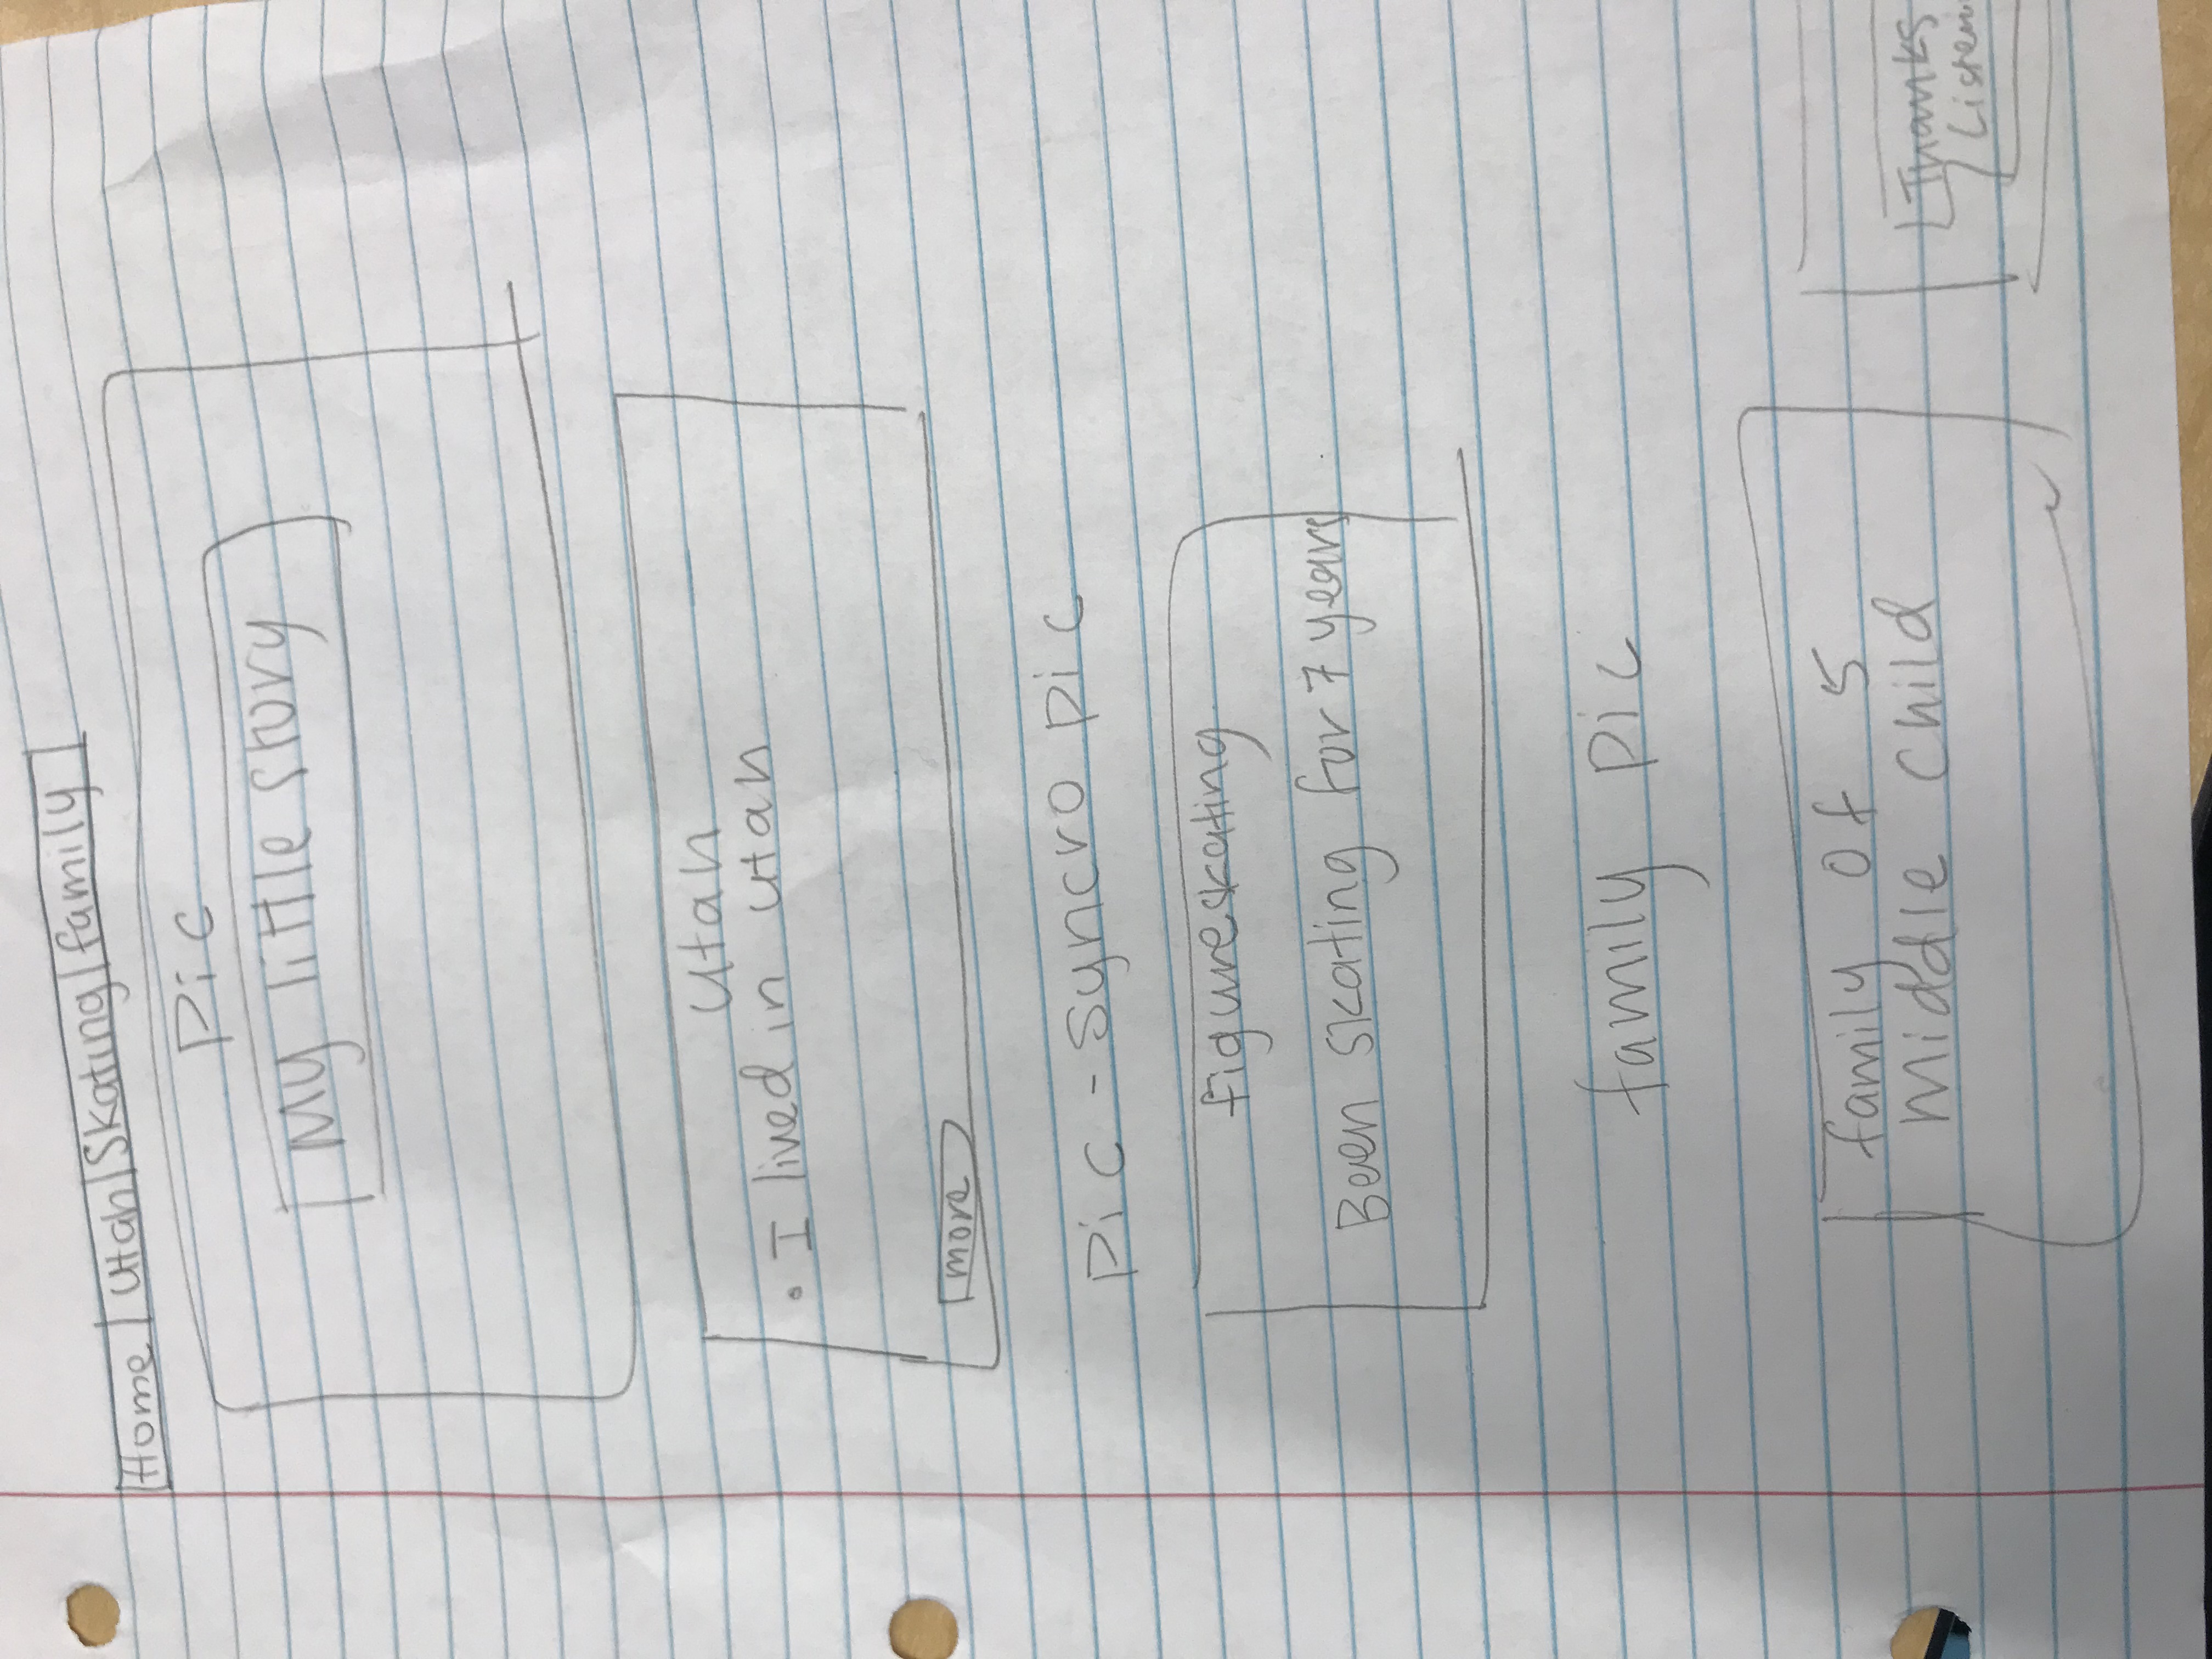 Home | Utah | Skating | family
Pic
My little story
Utah
• I lived in Utah
more
Pic - Syncro pic
figureskating
Been skating for 7 years
family pic
family of 5
Middle Child
Thanks